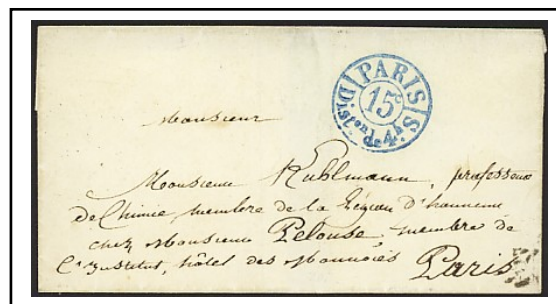 PARIS
15c
S.
Dist.on de 4h
Monsieur
Monsieur Kuhlmann, professeur
de Chimie membre de la Légion d'honneur
chez Monsieur Pelouse membre de
l'Institut, hôtel des Monnaies Paris